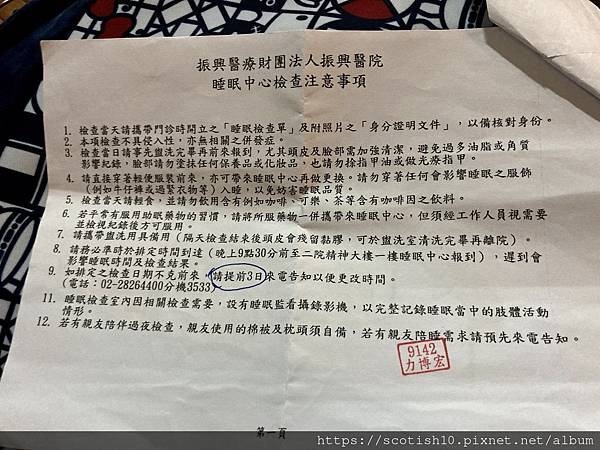 振興醫療財團法人振興醫院
睡眠中心檢查注意事項
1. 檢查當天請攜帶門診時間立之「睡眠檢查單」及附照片之「身分證明文件」，以備核對身份。
2. 本項檢查不具侵入性，亦無相關之併發症。
3. 檢查當日請事先盥洗完畢再前來報到，尤其頭皮及臉部需加強清潔，避免過多油脂或角質
影響紀錄，臉部請勿塗抹任何保養品或化妝品，也請勿捈指甲油或做光療指甲。
4. 請直接穿著輕便服裝前來，亦可帶來睡眠中心再做更換。請勿穿著任何會影響睡眠之服飾
(例如牛仔褲或過緊衣物等)入睡，以免妨害睡眠品質。
5. 檢查當天請輕食，並請勿飲用含有例如咖啡、可樂、茶等含有咖啡因之飲料。
6. 若平常有服用助眠藥物的習慣，請將所服藥物一併攜帶來睡眠中心，但須經工作人員視需要
並檢視紀錄後方可服用。
7. 請攜帶盥洗用具備用(隔天檢查結束後頭皮會殘留黏膠，可於盥洗室清洗完畢再離院)。
8. 請務必準時於排定時間到達(晚上9點30分前至二院精神大樓一樓睡眠中心報到)，遲到會
影響睡眠時間及檢查結果。
9. 如排定之檢查日期不克前來，請提前3日來電告知以便更改時間。
(電話：02-28264400分機3533)
11. 睡眠檢查室內因相關檢查需要，設有睡眠監看攝錄影機，以完整記錄睡眠當中的肢體活動
情形。
12. 若有親友陪伴過夜檢查，親友使用的棉被及枕頭須自備，若有親友陪睡需求請預先來電告知。
9142
力博宏
第一頁
https://scotish10.pixnet.net/album